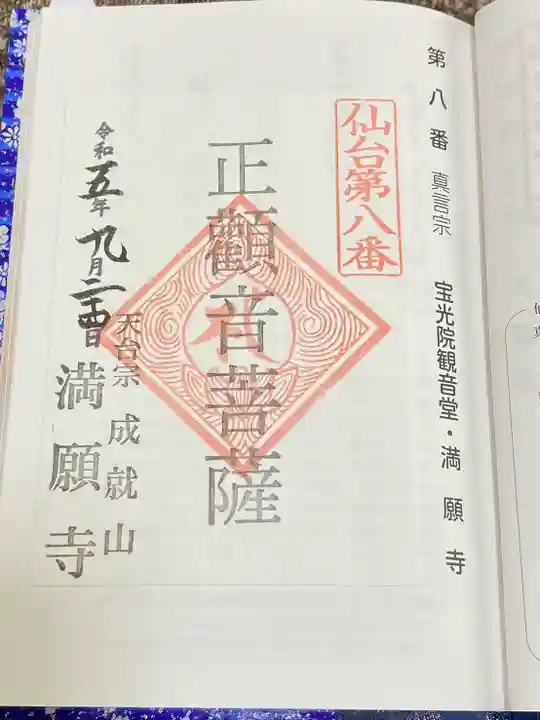 第八番 真言宗 宝光院観音堂・満願寺
仙台第八番
正観音菩薩
令和五年九月二十四日
天台宗 成就山
満願寺